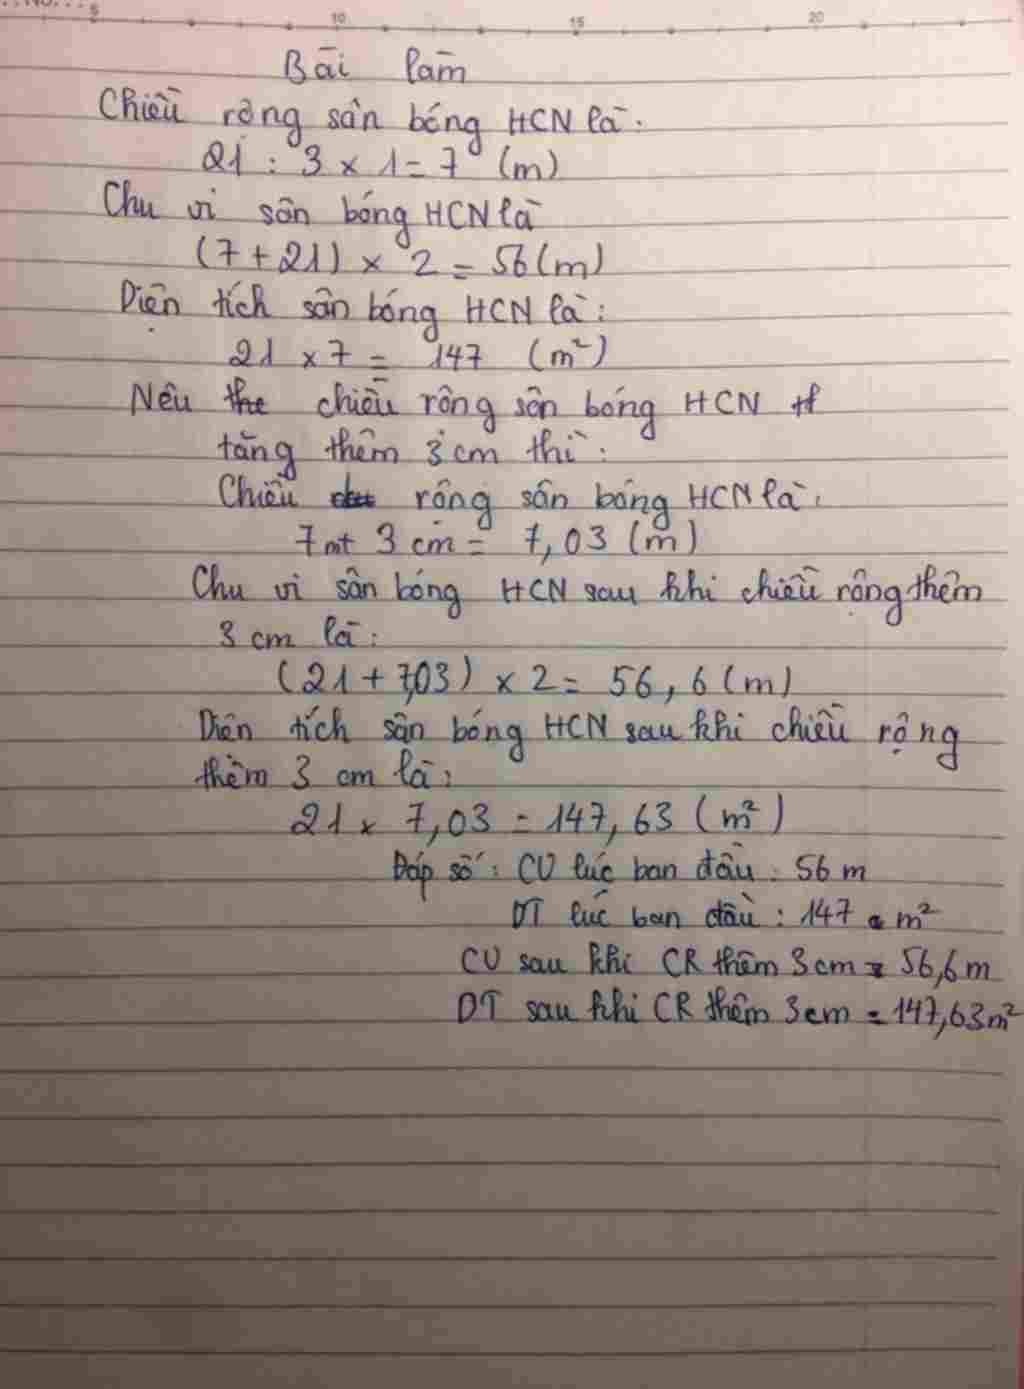 5 10 15 20
Bài làm
Chiều rộng sân bóng HCN là:
21 : 3 x 1 = 7 (m)
Chu vi sân bóng HCN là
(7 + 21) x 2 = 56 (m)
Diện tích sân bóng HCN là:
21 x 7 = 147 (m²)
Nếu chiều rộng sân bóng HCN
tăng thêm 3 cm thì:
Chiều rộng sân bóng HCN là:
7m + 3 cm = 7,03 (m)
Chu vi sân bóng HCN sau khi chiều rộng thêm
3 cm là:
(21 + 7,03) x 2 = 56,6 (m)
Diện tích sân bóng HCN sau khi chiều rộng
thêm 3 cm là:
21 x 7,03 = 147,63 (m²)
Đáp số: CV lúc ban đầu: 56 m
DT lúc ban đầu: 147 m²
CV sau khi CR thêm 3 cm = 56,6 m
DT sau khi CR thêm 3 cm = 147,63 m²